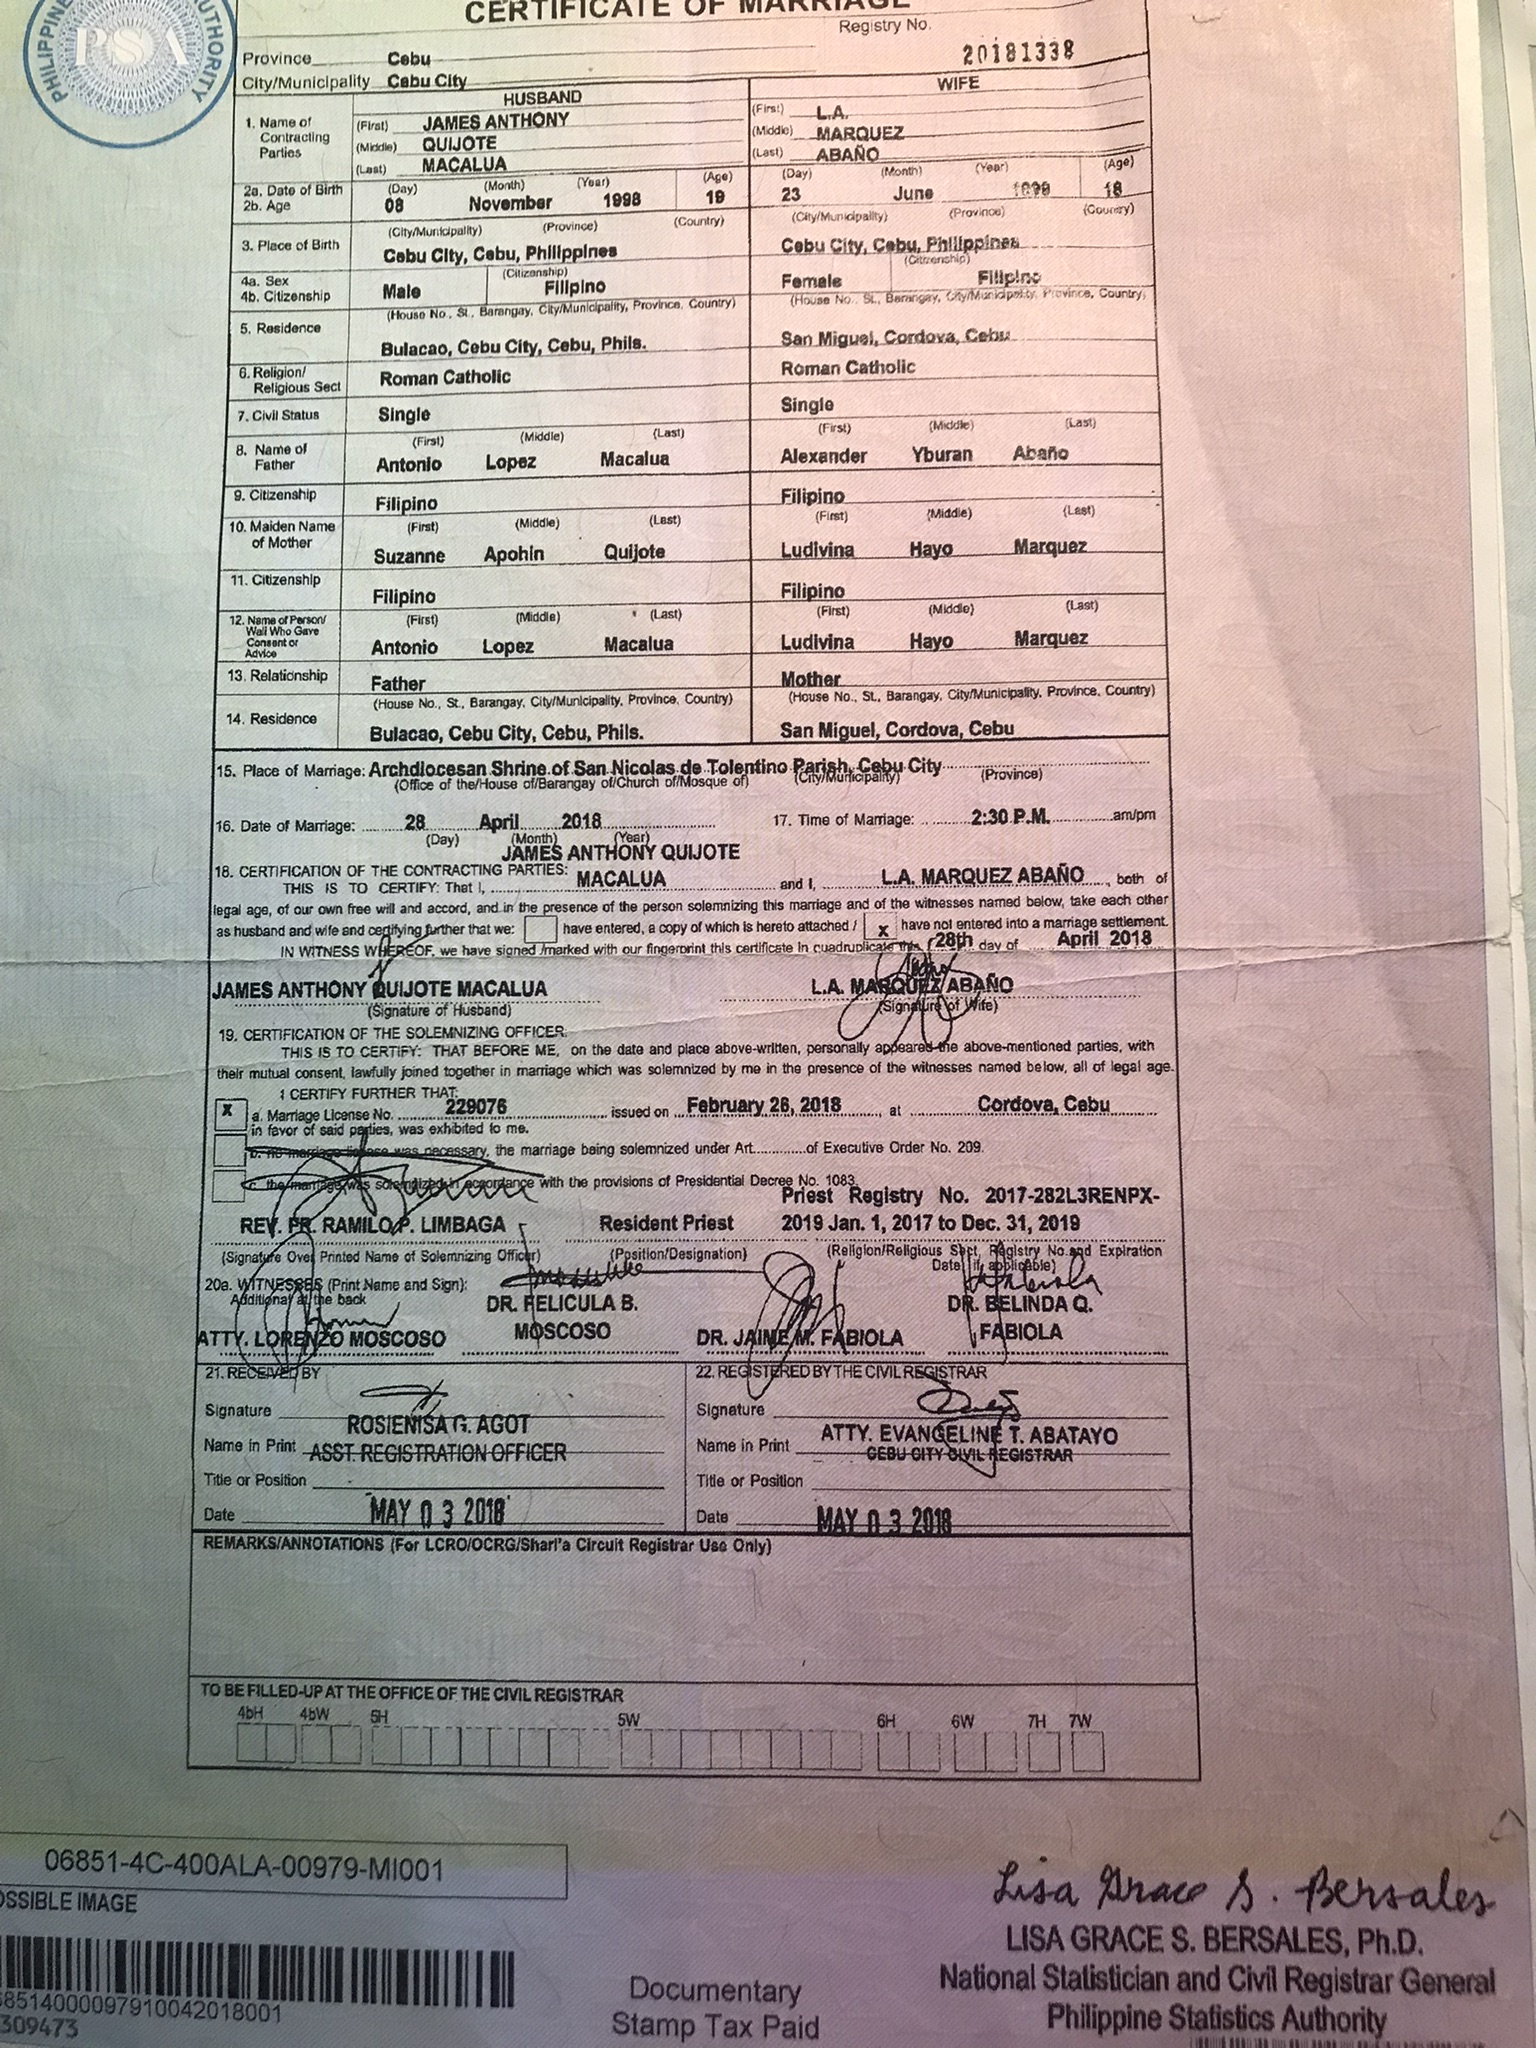 PHILIPPINE
AUTHORITY
PSA
CERTIFICATE OF MARRIAGE
Registry No.
Province Cebu 20181338
City/Municipality Cebu City
HUSBAND WIFE
1. Name of Contracting Parties
(First) JAMES ANTHONY (First) L.A.
(Middle) QUIJOTE (Middle) MARQUEZ
(Last) MACALUA (Last) ABAÑO
2a. Date of Birth (Day) (Month) (Year) (Age) (Day) (Month) (Year) (Age)
2b. Age 08 November 1998 19 23 June 18
(City/Municipality) (Province) (Country) (City/Municipality) (Province) (Country)
3. Place of Birth Cebu City, Cebu, Philippines Cebu City, Cebu, Philippines
4a. Sex (Citizenship) (Citizenship)
4b. Citizenship Male Filipino Female Filipino
(House No., St., Barangay, City/Municipality, Province, Country) (House No., St., Barangay, City/Municipality, Province, Country)
5. Residence Bulacao, Cebu City, Cebu, Phils. San Miguel, Cordova, Cebu
6. Religion/ Religious Sect Roman Catholic Roman Catholic
7. Civil Status Single Single
(First) (Middle) (Last) (First) (Middle) (Last)
8. Name of Father Antonio Lopez Macalua Alexander Yburan Abaño
9. Citizenship Filipino Filipino
(First) (Middle) (Last) (First) (Middle) (Last)
10. Maiden Name of Mother Suzanne Apohin Quijote Ludivina Hayo Marquez
11. Citizenship Filipino Filipino
(First) (Middle) (Last) (First) (Middle) (Last)
12. Name of Person/ Wali Who Gave Consent or Advice Antonio Lopez Macalua Ludivina Hayo Marquez
13. Relationship Father Mother
(House No., St., Barangay, City/Municipality, Province, Country) (House No., St., Barangay, City/Municipality, Province, Country)
14. Residence Bulacao, Cebu City, Cebu, Phils. San Miguel, Cordova, Cebu
15. Place of Marriage: Archdiocesan Shrine of San Nicolas de Tolentino Parish, Cebu City
(Office of the/House of/Barangay of/Church of/Mosque of) (City/Municipality) (Province)
16. Date of Marriage: 28 April 2018 17. Time of Marriage: 2:30 P.M. am/pm
(Day) (Month) (Year)
JAMES ANTHONY QUIJOTE
18. CERTIFICATION OF THE CONTRACTING PARTIES:
THIS IS TO CERTIFY: That I, MACALUA and I, L.A. MARQUEZ ABAÑO, both of
legal age, of our own free will and accord, and in the presence of the person solemnizing this marriage and of the witnesses named below, take each other
as husband and wife and certifying further that we: have entered, a copy of which is hereto attached / x have not entered into a marriage settlement.
IN WITNESS WHEREOF, we have signed /marked with our fingerprint this certificate in quadruplicate this 28th day of April 2018
JAMES ANTHONY QUIJOTE MACALUA L.A. MARQUEZ ABAÑO
(Signature of Husband) (Signature of Wife)
19. CERTIFICATION OF THE SOLEMNIZING OFFICER:
THIS IS TO CERTIFY: THAT BEFORE ME, on the date and place above-written, personally appeared the above-mentioned parties, with
their mutual consent, lawfully joined together in marriage which was solemnized by me in the presence of the witnesses named below, all of legal age.
I CERTIFY FURTHER THAT:
x a. Marriage License No. 229076 issued on February 26, 2018, at Cordova, Cebu
in favor of said parties, was exhibited to me.
b. no marriage license was necessary, the marriage being solemnized under Art. of Executive Order No. 209.
c. the marriage was solemnized in accordance with the provisions of Presidential Decree No. 1083.
Priest Registry No. 2017-282L3RENPX-
REV. FR. RAMILO P. LIMBAGA Resident Priest 2019 Jan. 1, 2017 to Dec. 31, 2019
(Signature Over Printed Name of Solemnizing Officer) (Position/Designation) (Religion/Religious Sect, Registry No.and Expiration
Date, if applicable)
20a. WITNESSES (Print Name and Sign):
Additional at the back DR. FELICULA B. DR. BELINDA Q.
ATTY. LORENZO MOSCOSO MOSCOSO DR. JAIME M. FABIOLA FABIOLA
21. RECEIVED BY 22. REGISTERED BY THE CIVIL REGISTRAR
Signature Signature
ROSIENISA G. AGOT ATTY. EVANGELINE T. ABATAYO
Name in Print ASST. REGISTRATION OFFICER Name in Print CEBU CITY CIVIL REGISTRAR
Title or Position Title or Position
Date MAY 03 2018 Date MAY 03 2018
REMARKS/ANNOTATIONS (For LCRO/OCRG/Shari'a Circuit Registrar Use Only)
TO BE FILLED-UP AT THE OFFICE OF THE CIVIL REGISTRAR
4bH 4bW 5H 5W 6H 6W 7H 7W
06851-4C-400ALA-00979-MI001
OSSIBLE IMAGE
Lisa Grace S. Bersales
LISA GRACE S. BERSALES, Ph.D.
National Statistician and Civil Registrar General
Philippine Statistics Authority
68514000097910042018001
309473
Documentary
Stamp Tax Paid